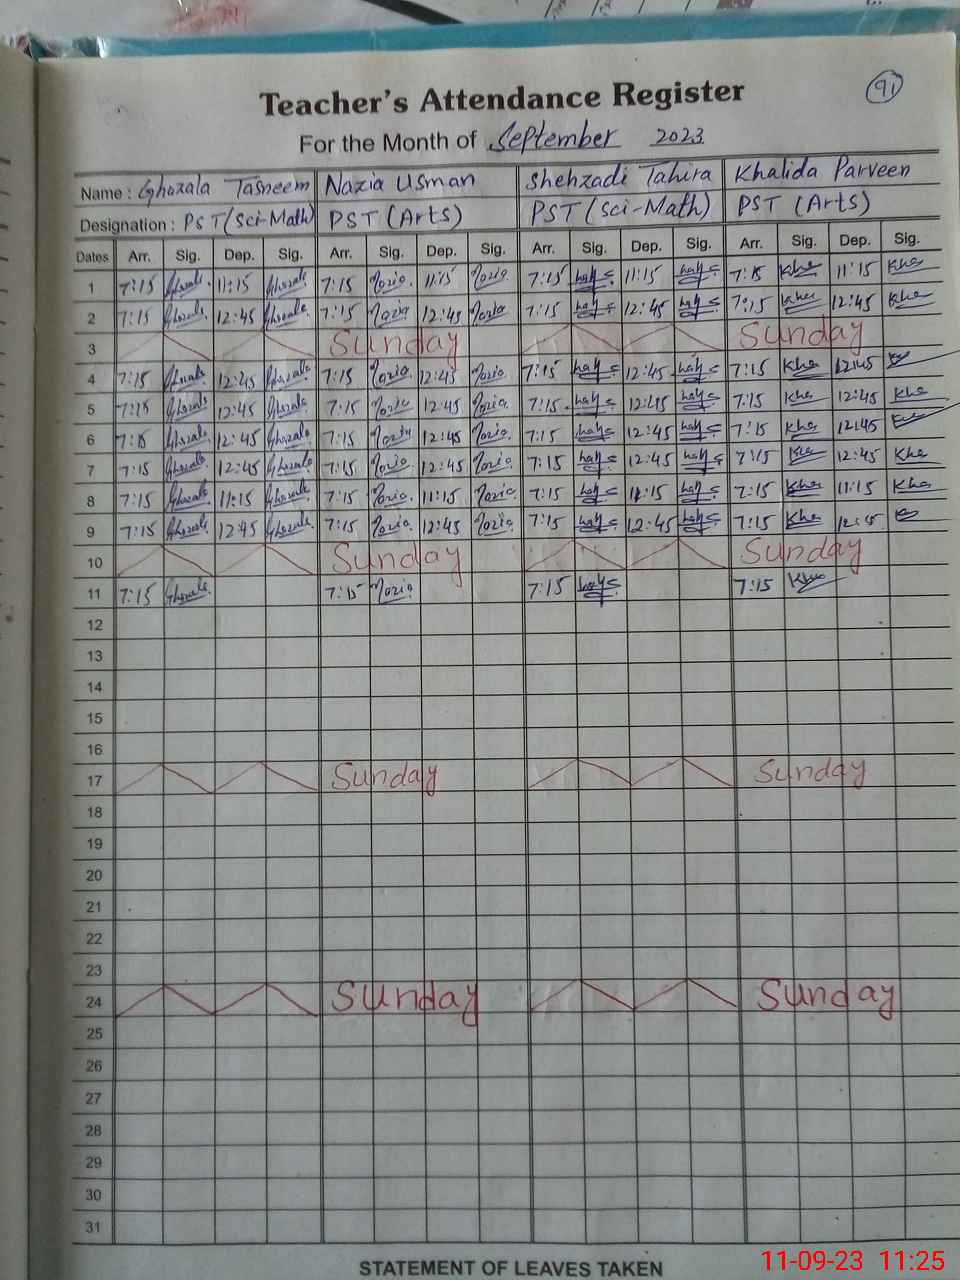 91
Teacher's Attendance Register
For the Month of September 2023
Name : Ghozala Tasneem Nazia Usman Shehzadi Tahira Khalida Parveen
Designation : PST (Sci-Math) PST (Arts) PST (Sci-Math) PST (Arts)
Dates Arr. Sig. Dep. Sig. Arr. Sig. Dep. Sig. Arr. Sig. Dep. Sig. Arr. Sig. Dep. Sig.
1 7:15 Ghozala 11:15 Ghozala 7:15 Nozia 11:15 Nozia 7:15 11:15 7:15 Kha 11:15 Kha
2 7:15 Ghozala 12:45 Ghozala 7:15 Nozia 12:45 Nozia 7:15 12:45 7:15 Kha 12:45 Kha
3 Sunday Sunday
4 7:15 Ghozala 12:45 Ghozala 7:15 Nozia 12:45 Nozia 7:15 12:45 7:15 Kha 12:45
5 7:15 Ghozala 12:45 Ghozala 7:15 Nozia 12:45 Nozia 7:15 12:45 7:15 Kha 12:45 Kha
6 7:15 Ghozala 12:45 Ghozala 7:15 Nozia 12:45 Nozia 7:15 12:45 7:15 Kha 12:45
7 7:15 Ghozala 12:45 Ghozala 7:15 Nozia 12:45 Nozia 7:15 12:45 7:15 Kha 12:45 Kha
8 7:15 Ghozala 11:15 Ghozala 7:15 Nozia 11:15 Nozia 7:15 11:15 7:15 Kha 11:15 Kha
9 7:15 Ghozala 12:45 Ghozala 7:15 Nozia 12:45 Nozia 7:15 12:45 7:15 Kha 12:45
10 Sunday Sunday
11 7:15 Ghozala 7:15 Nozia 7:15 7:15 Kha
12
13
14
15
16
17 Sunday Sunday
18
19
20
21
22
23
24 Sunday Sunday
25
26
27
28
29
30
31
STATEMENT OF LEAVES TAKEN
11-09-23 11:25